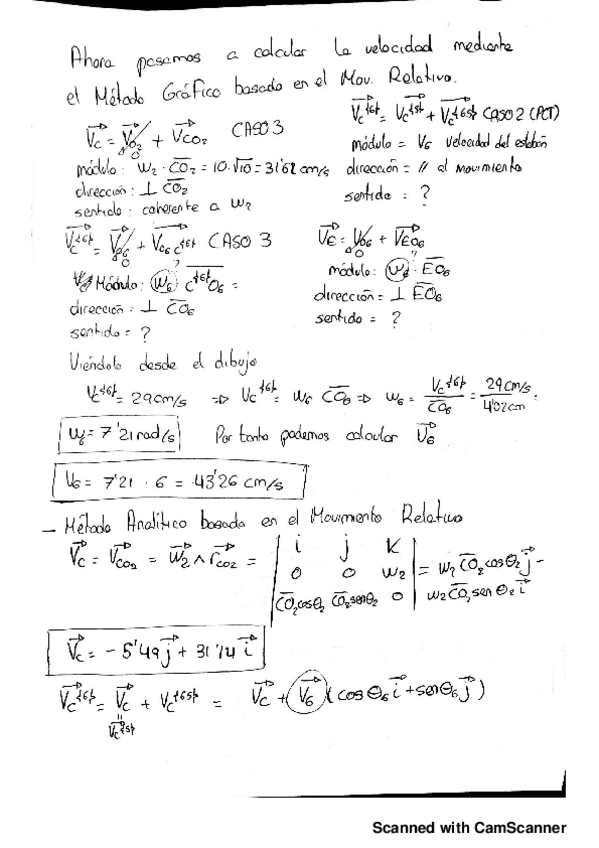 Ahora pasamos a calcular la velocidad mediante
el Método Gráfico basado en el Mov. Relativo.
V⃗c = V⃗o₂ + V⃗co₂ CASO 3
0
módulo: w₂ · CO₂ = 10·√10 = 31'62 cm/s
dirección: ⊥ CO₂
sentido: coherente a w₂
V⃗c{6} = V⃗c{5} + V⃗c{65} CASO 2 (PCT)
módulo = V₆ velocidad del eslabón
dirección = // al movimiento
sentido = ?
V⃗c{6} = V⃗o₆ + V⃗o₆c{6} CASO 3
0 ?
Módulo: w₆ C{6}O₆ =
dirección = ⊥ CO₆
sentido = ?
V⃗E = V⃗o₆ + V⃗Eo₆
0 ?
módulo: w₆ · EO₆
dirección = ⊥ EO₆
sentido = ?
Viéndolo desde el dibujo
Vc{6} = 29 cm/s ⇒ Vc{6} = w₆ CO₆ ⇒ w₆ = Vc{6}/CO₆ = 29 cm/s / 4'02 cm =
w₆ = 7'21 rad/s Por tanto podemos calcular V⃗₆
V₆ = 7'21 · 6 = 43'26 cm/s
– Método Analítico basada en el Movimiento Relativo
V⃗c = V⃗co₂ = w⃗₂ ∧ r⃗co₂ = | i j k |
| 0 0 w₂ | = w₂ CO₂ cosθ₂ j⃗ –
| CO₂cosθ₂ CO₂senθ₂ 0 | w₂ CO₂ senθ₂ i⃗
V⃗c = - 5'49 j⃗ + 31'14 i⃗
V⃗c{6} = V⃗c + Vc{65} = V⃗c + V⃗₆ (cosθ₆ i⃗ + senθ₆ j⃗)
=
V⃗c{5}
Scanned with CamScanner